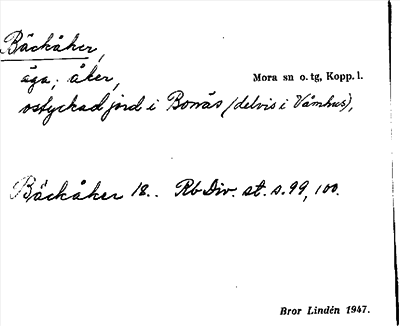 Bäckåker,
äga, åker,
Mora sn o. tg, Kopp. l.
ostyckad jord i Bonäs (delvis i Våmhus),
Bäckåker 18.. Rb Div. st. s. 99, 100.
Bror Lindén 1947.